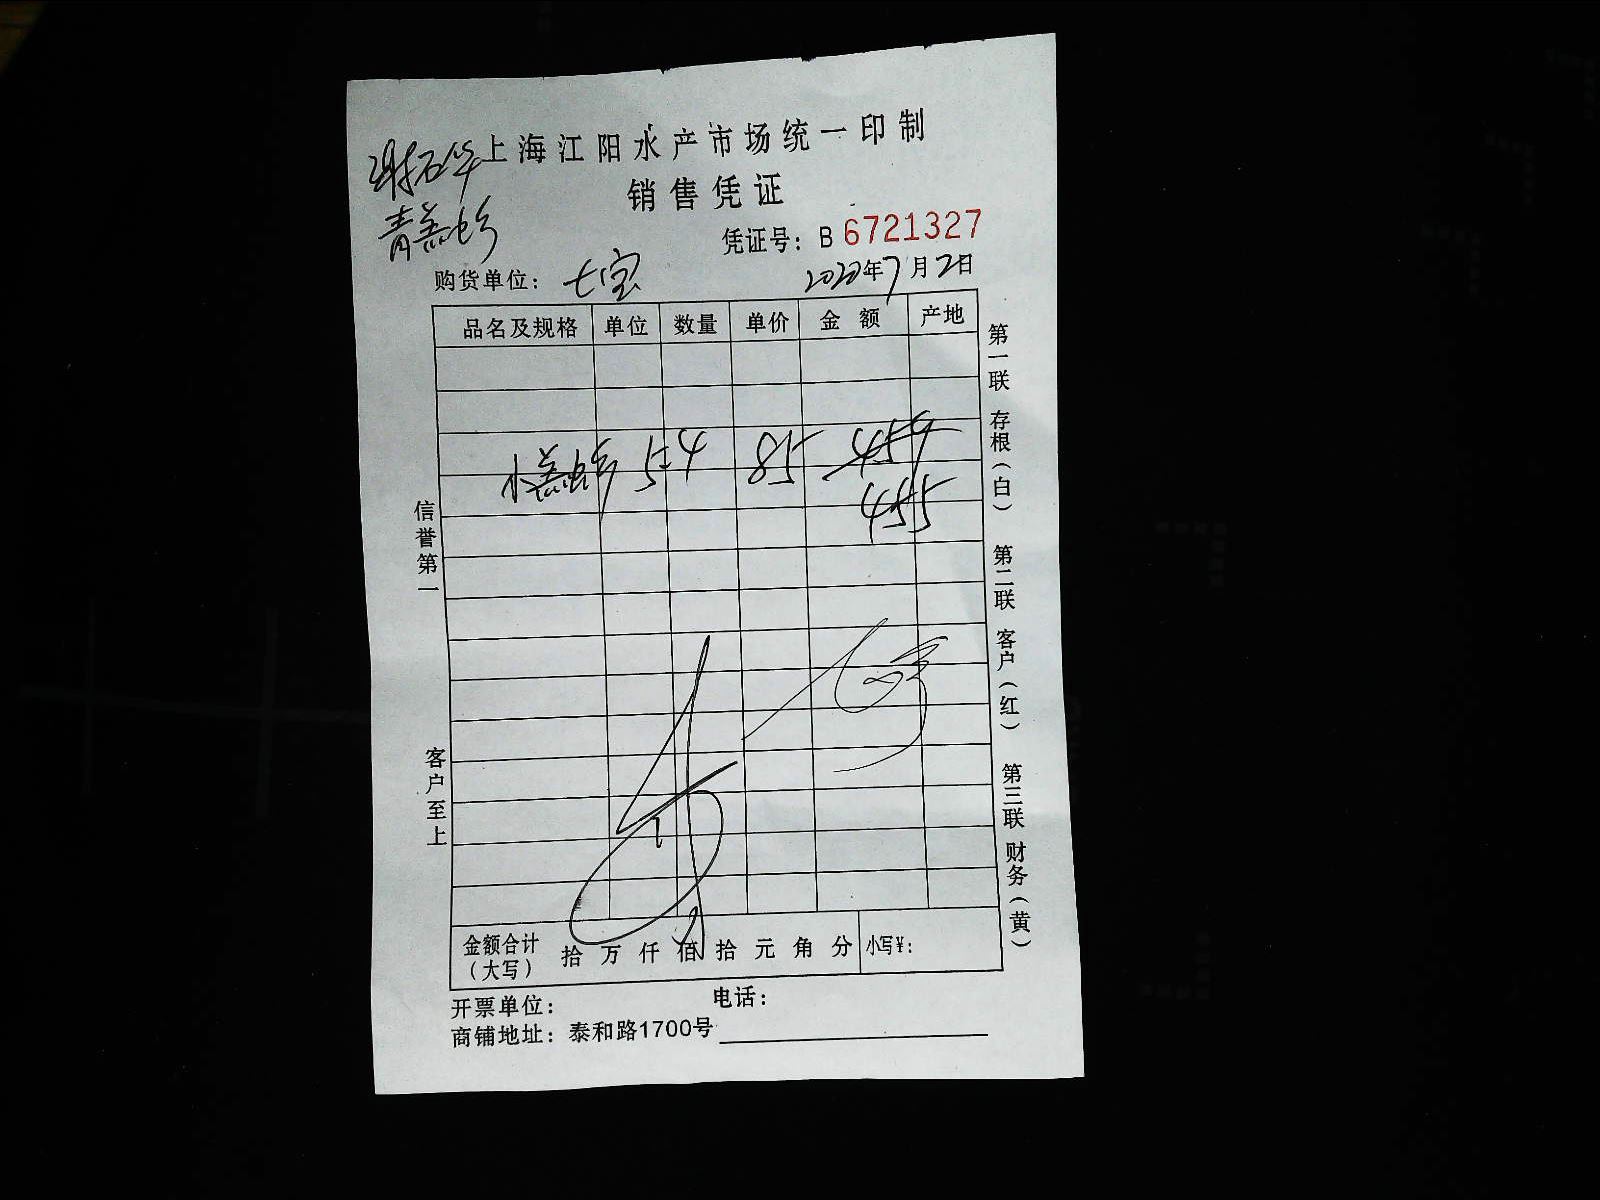 谢石华 上海江阳水产市场统一印制
销售凭证
青羔蚧
凭证号：B 6721327
购货单位：七宝 2020年7月2日
品名及规格 单位 数量 单价 金 额 产地
5=4 85 459
455
信誉第一
客户至上
第一联 存根（白） 第二联 客户（红） 第三联 财务（黄）
金额合计（大写） 拾 万 仟 佰 拾 元 角 分 小写¥：
开票单位： 电话：
商铺地址：泰和路1700号